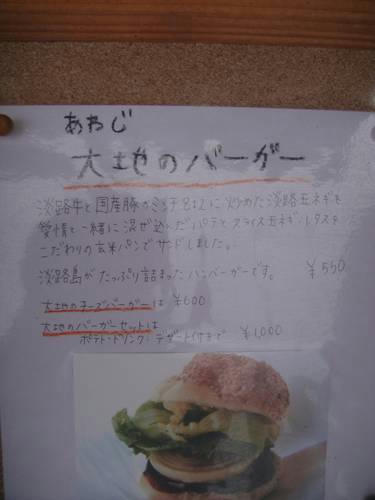 あわじ
大地のバーガー
淡路牛と国産豚のミンチ口に炒めた淡路玉ネギを
愛情と一緒に混ぜ込んだパテとスライス玉ネギ・レタスを
こだわりの玄米パンでサンドしました。
淡路島がたっぷり詰まったハンバーガーです。 ¥550
大地のチーズバーガーは ¥600
大地のバーガーセットは
ポテト・ドリンク・デザート付きで ¥1,000